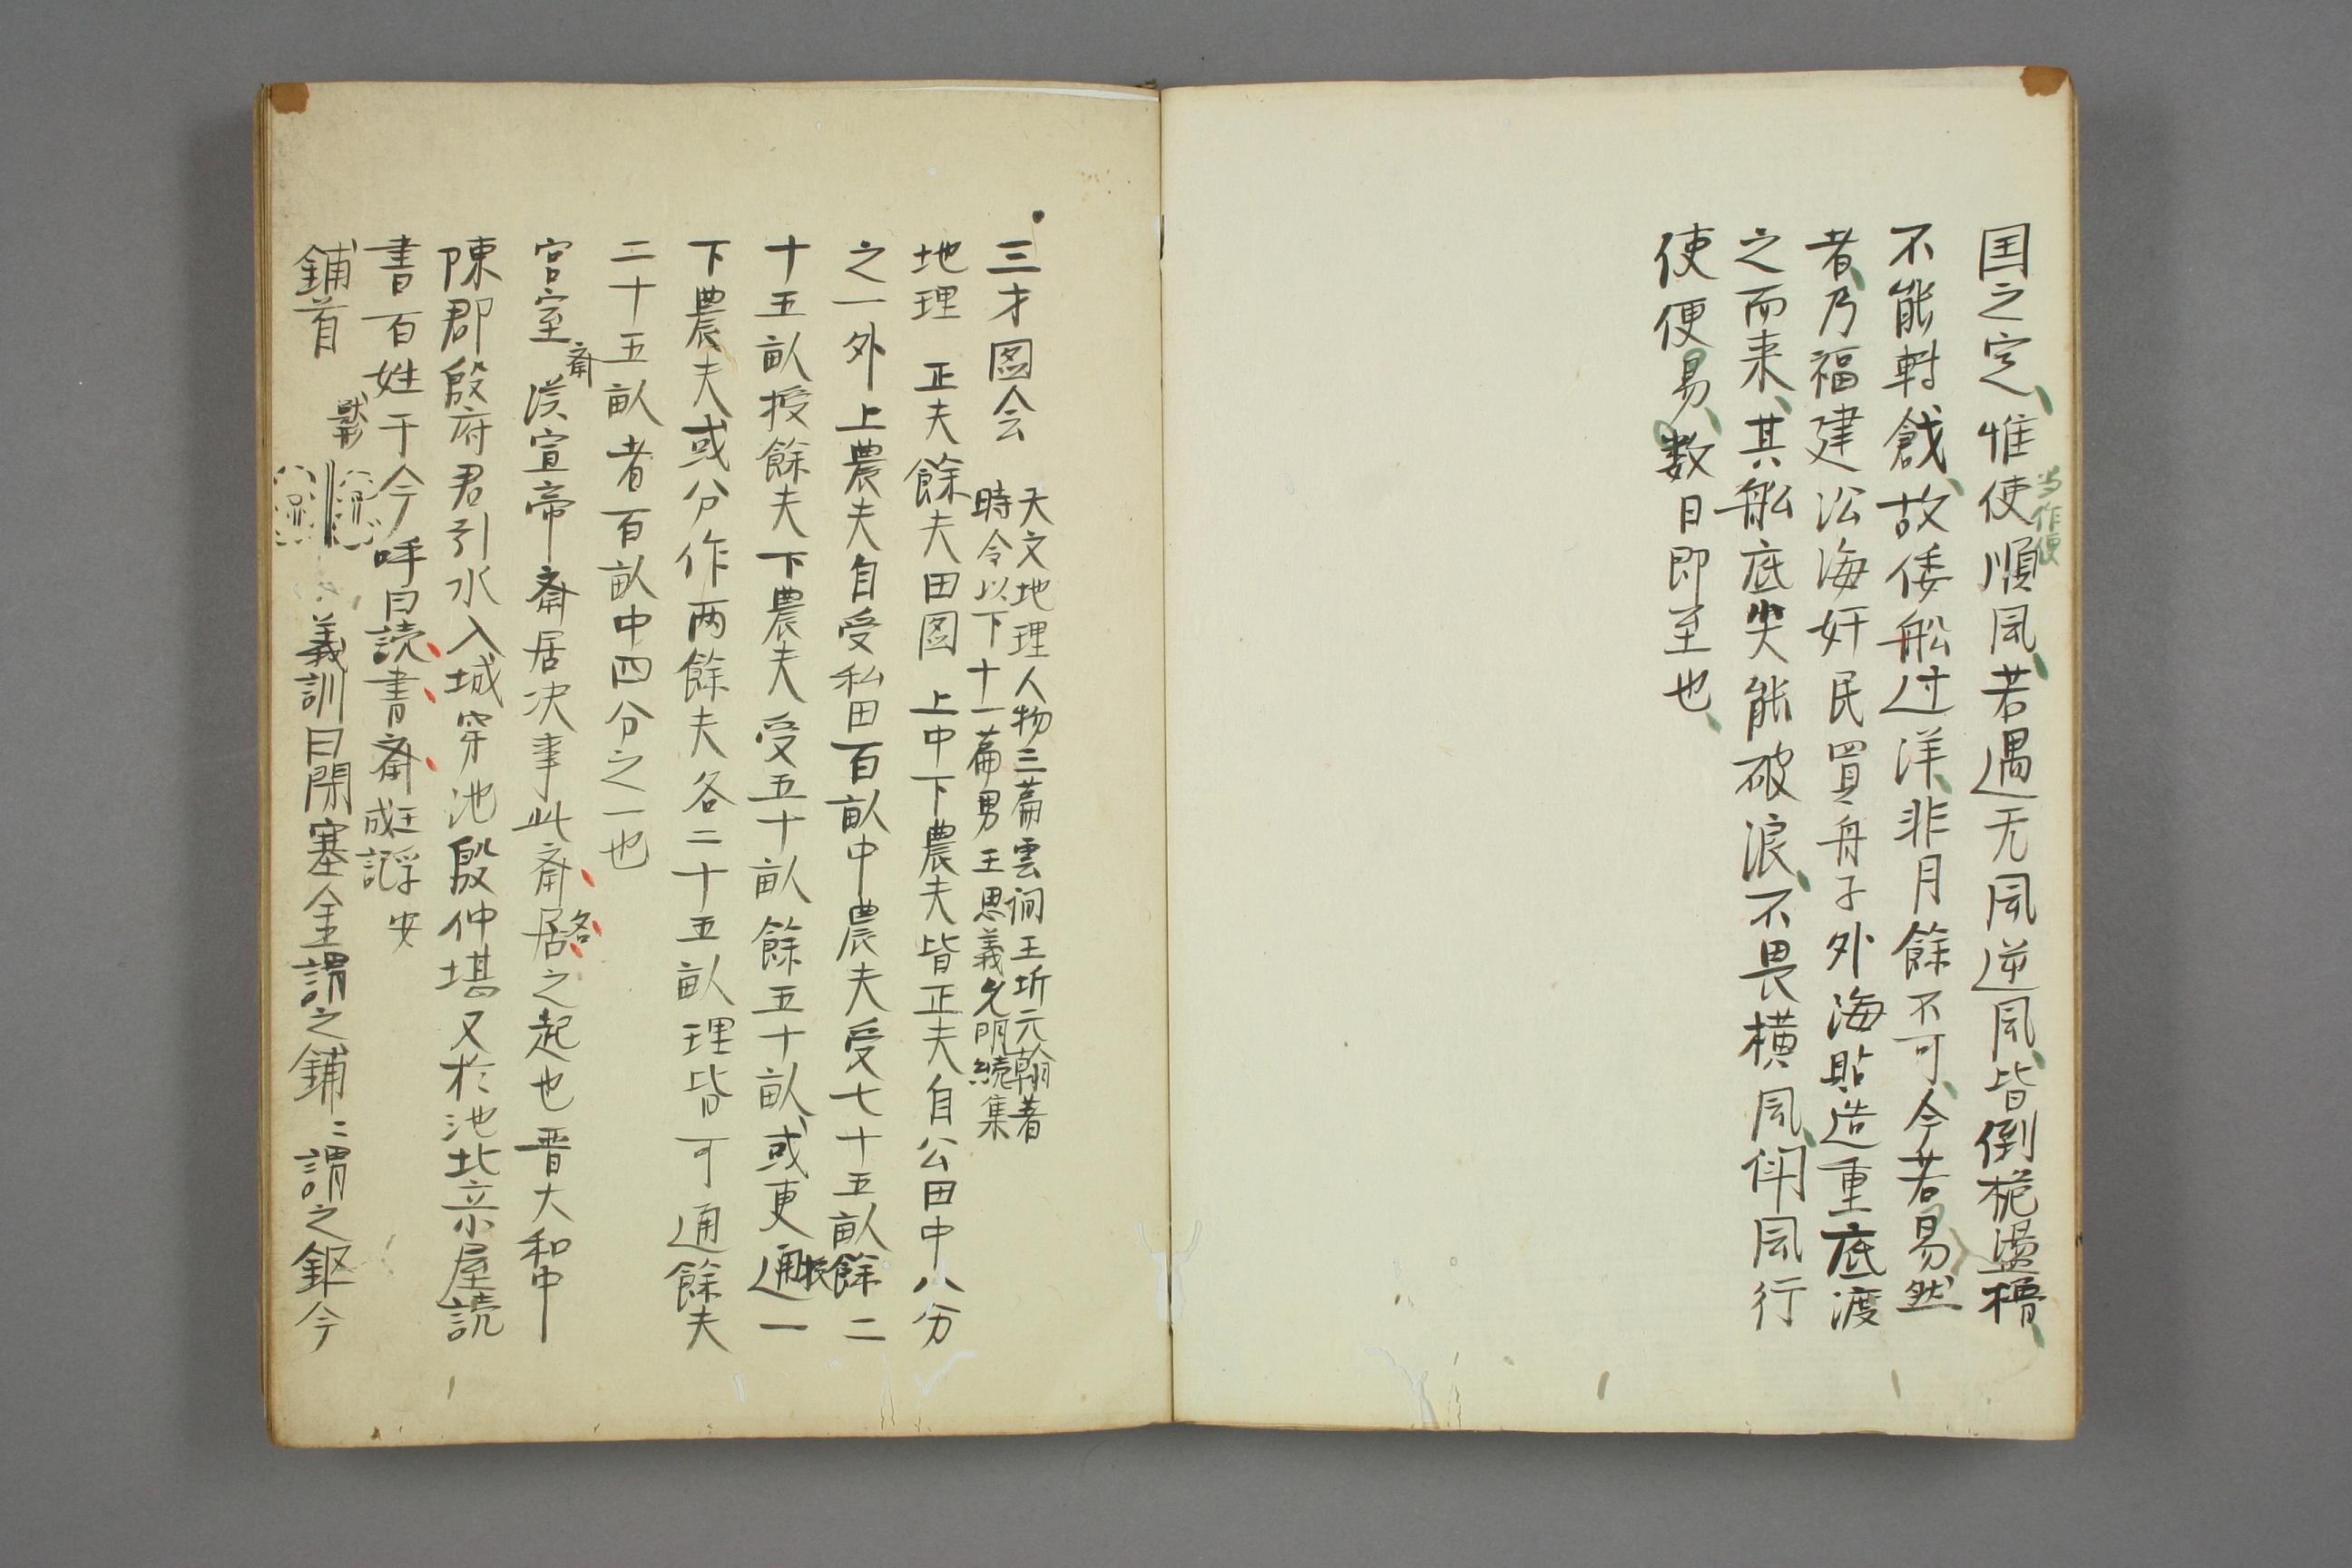 国之定、惟使順风、若遇无风逆风、皆倒桅盪櫓、
当作便
不能軡戗、故倭舩过洋、非月餘不可、今若易然
者、乃福建沿海奸民買舟于外海貼造重底渡
之而来、其舩底尖能破浪、不畏横风、鬦风行
使便易、数日即至也、
三才图会
天文地理人物三篇雲间王圻元翰著
時令以下十一篇男王思義允明続集
地理 正夫餘夫田图 上中下農夫皆正夫自公田中八分
之一外上農夫自受私田百畝中農夫受七十五畝餘二
十五畝授餘夫下農夫受五十畝餘五十畝或更通授一
下農夫或分作两餘夫各二十五畝理皆可通餘夫
二十五畝者百畝中四分之一也
宮室 斎 漢宣帝斎居决事此斎居之名起也晋大和中
陳郡殷府君引水入城穿池殷仲堪又於池北立小屋読
書百姓于今呼曰読書斎 王子安成記
鋪首 獣形 義訓曰閉塞金謂之鋪〻謂之鏂今